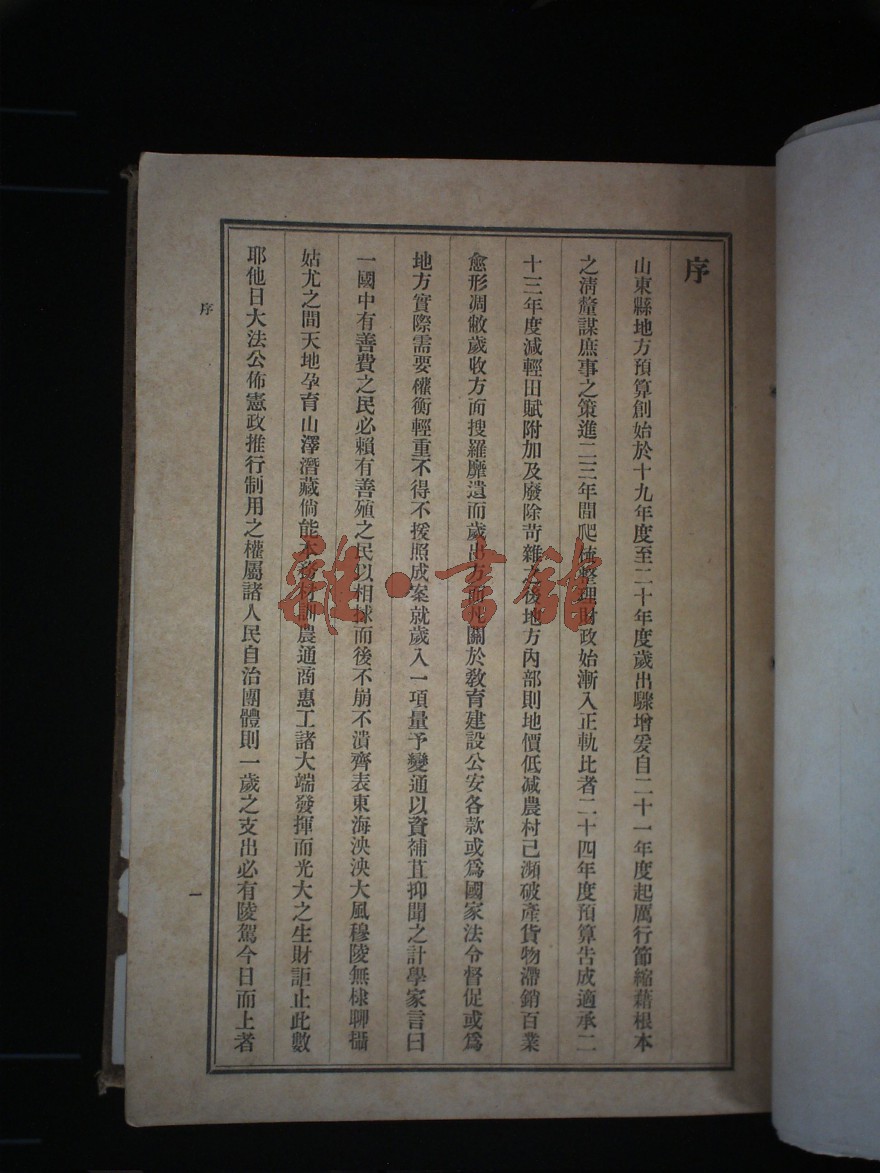 序
山東縣地方預算創始於十九年度至二十年度歲出驟增爰自二十一年度起厲行節縮藉根本
之淸釐謀庶事之策進二三年間爬梳整理財政始漸入正軌比者二十四年度預算告成適承二
十三年度減輕田賦附加及廢除苛雜之後地方內部則地價低減農村已瀕破產貨物滯銷百業
愈形凋敝歲收方面搜羅靡遺而歲出方面凡關於敎育建設公安各款或爲國家法令督促或爲
地方實際需要權衡輕重不得不援照成案就歲入一項量予變通以資補苴抑聞之計學家言曰
一國中有善費之民必賴有善殖之民以相捄而後不崩不潰齊表東海泱泱大風穆陵無棣聊攝
姑尤之間天地孕育山澤潛藏倘能本務材訓農通商惠工諸大端發揮而光大之生財詎止此數
耶他日大法公佈憲政推行制用之權屬諸人民自治團體則一歲之支出必有陵駕今日而上者
序
一
雅·書館